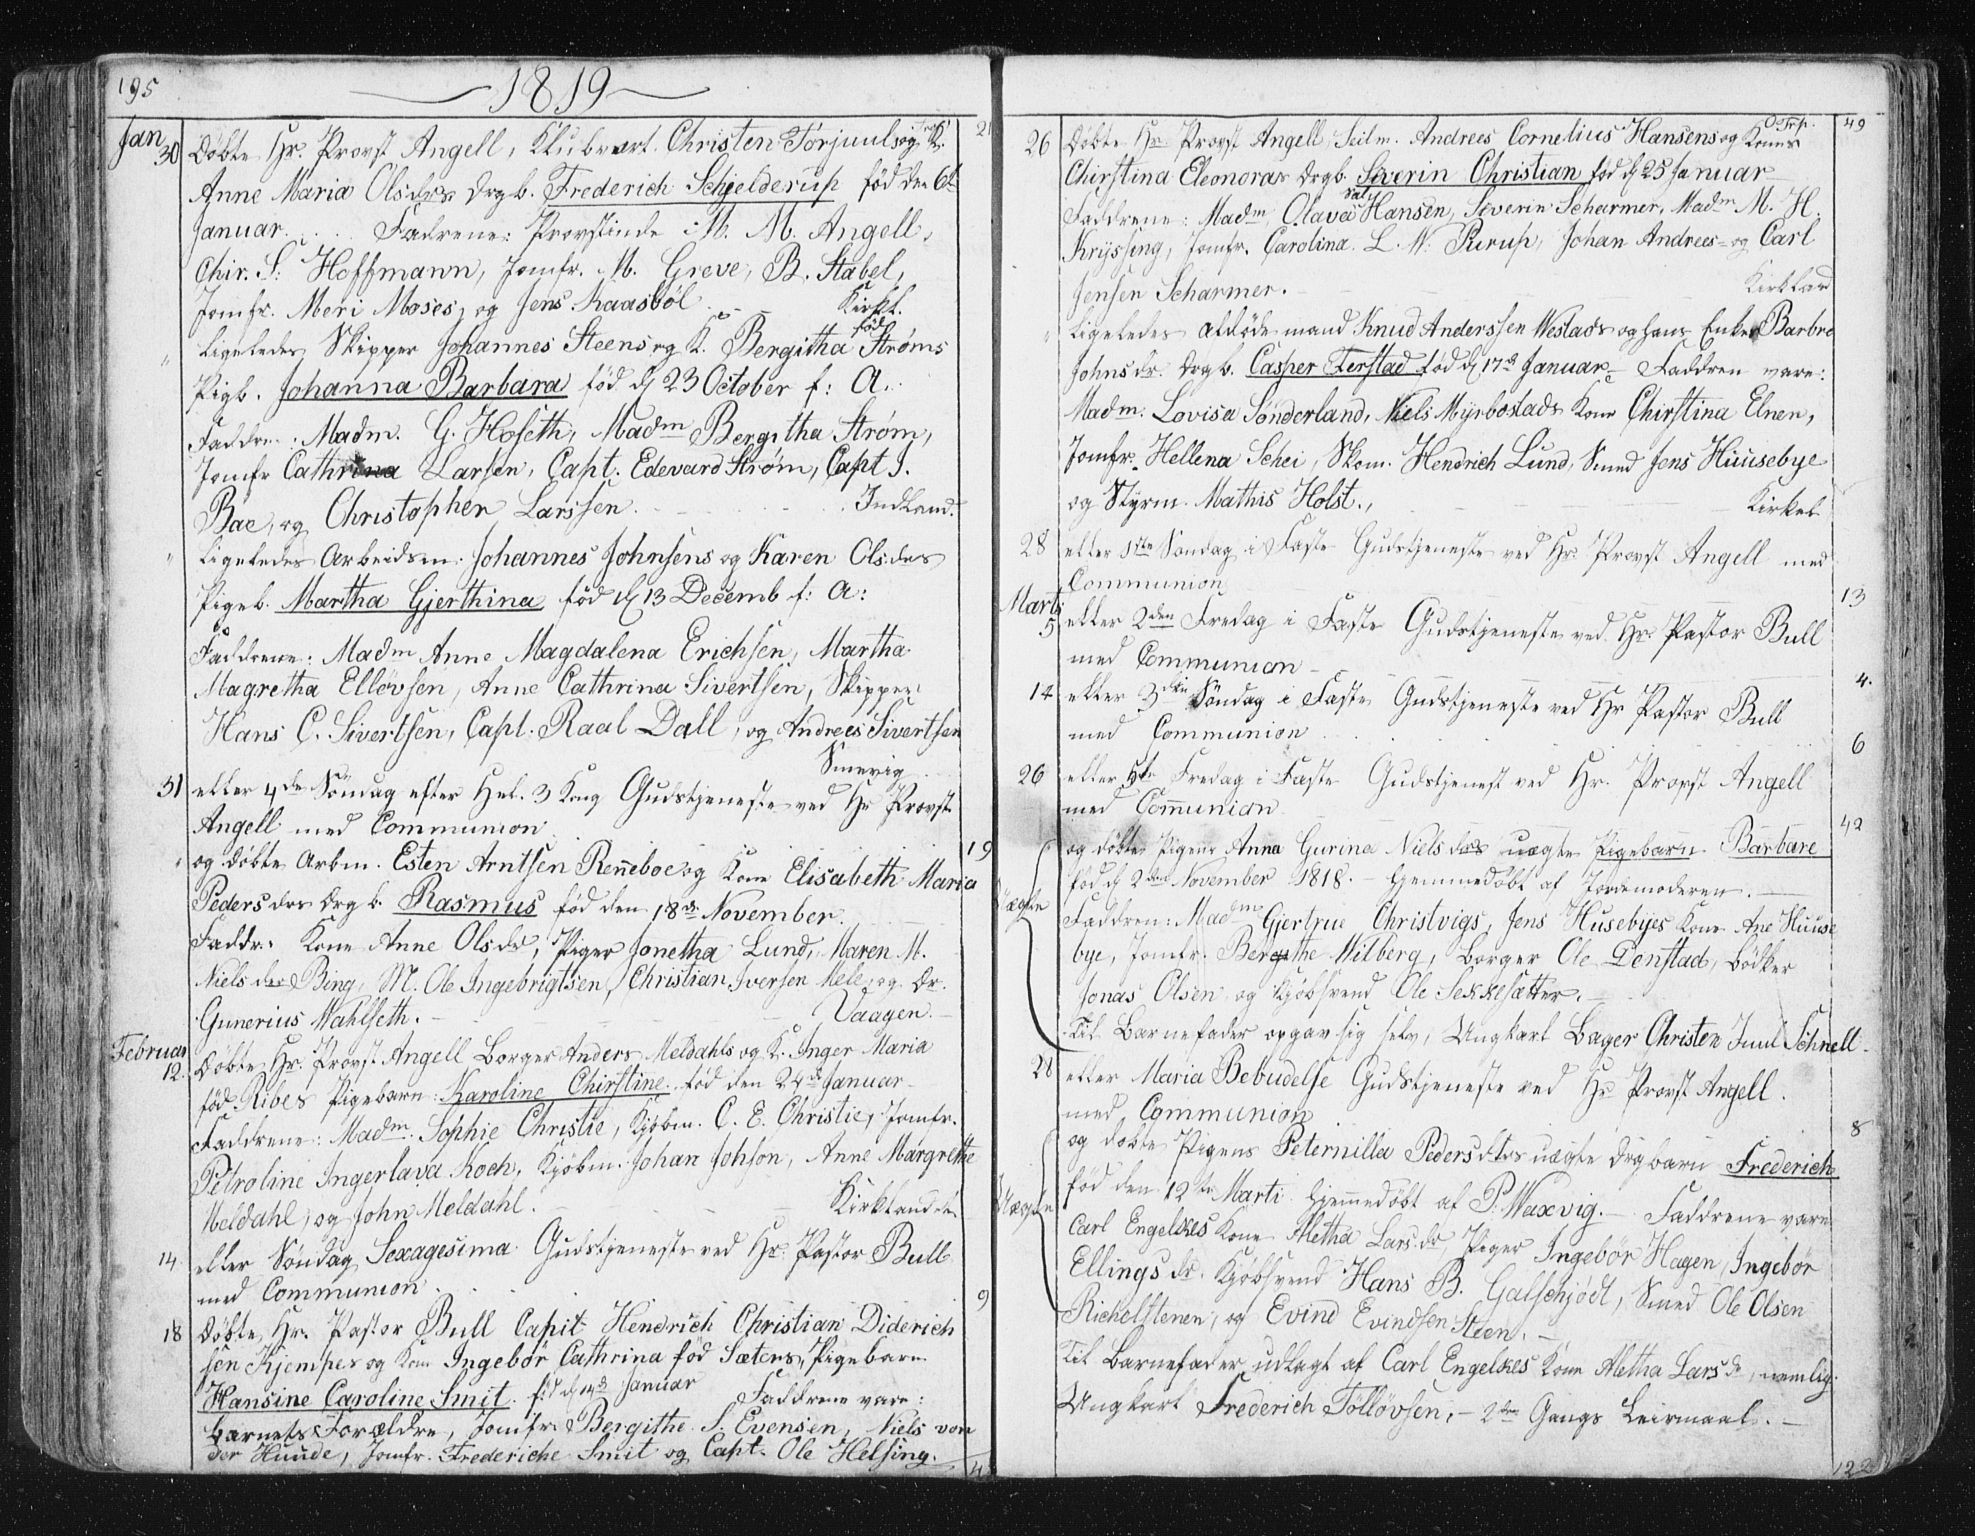 195
1819
Jan 30 Döbte Hr. Provst Angell, Klubvert Christen Torjuuls og K. 21
Anne Maria Olsdrs Drgb. Frederich Schjelderup föd den 6te
Januar. Fadrene: Provstinde M. M. Angell,
Chir. S. Hoffmann, Jomfr. M. Greve, B. Stabel,
Jomfr. Meri Moses, og Jens Kaasböl. Kirkl.
" Ligeledes Skipper Johannes Steens og K. Bergitha föd Strøms
Pigb. Johanna Barbara föd d 23 October f: A.
Faddre: Madm. G. Hoseth, Madm Bergitha Strøm,
Jomfr Cathrina Larsen, Capt. Edevard Strøm, Capt J.
Bae, og Christopher Larssen. Indland.
" Ligeledes Arbeidsm. Johannes Johnsens og Karen Olsdrs
Pigeb. Martha Gjerthina föd d 13 Decemb f: A:
Faddrene: Madm Anne Magdalena Erichsen, Martha
Magretha Ellevsen, Anne Cathrina Sivertsen, Skipper
Hans C. Sivertsen, Capt. Raal Dall, og Andrees Sivertsen
Smevig
31 eller 4de Söndag efter Hel. 3 Kong Gudstjeneste ved Hr Provst
Angell med Communion 19
" og döbte Arbm. Esten Arntsen Renneboe og Kone Elisabeth Maria
Pedersdrs Drgb. Rasmus föd den 18de November.
Faddr: Kone Anne Olsdr, Piger Jonetha Lund, Maren M.
Nielsdr Bing, M. Ole Ingebrigtsen, Christian Iversen Mele, og Dr.
Gunerius Wahlseth. Vaagen.
Februar 12. Döbte Hr. Provst Angell Borger Anders Meldahls og K. Inger Maria
föd Ribes Pigebarn Karoline Chirstine föd den 24de Januar
Faddrene: Madm. Sophie Christie, Kjöbm. C. E. Christie, Jomfr.
Petroline Ingerlava Koch, Kjöbm. Johan Johson, Anne Margrethe
Meldahl, og John Meldahl. Kirklandet.
14 eller Söndag Sexagesima Gudstjeneste ved Hr. Pastor Bull
med Communion 9
18 Döbte Hr. Pastor Bull Capit Hendrich Christian Diderich
sen Kjempes og Kone Ingebör Cathrina föd Sæters, Pigebarn
Hansine Caroline Smit. föd d 14de Januar Faddrene vare:
barnets Forældre, Jomfr Bergithe S. Evensen, Niels von
der Hunde, Jomfr. Frederiche Smit og Capt. Ole Helsing. 4
26 Döbte Hr. Provst Angell Seilm. Andrees Cornelius Hansens og Kones 49
Chirstina Eleonoras Drgb. Siverin Christian föd d 25 Januar
Faddrene: Madm Olava Hansen, Siverin Scharmer, Madm M. H.
Krÿssing, Jomfr. Carolina L. N. Purup, Johan Andrees og Carl
Jensen Scharmer. Kirkland
" Ligeledes afdöde mand Knud Anderssen Westads og hans Enke Barbro
Johnsdr. Drgb. Casper Ferstad föd d 17de Januar Faddren vare:
Madm. Lovisa Sönderland, Niels Myrbostads Kone Chirstina Elnen,
Jomfr. Hellena Schei, Skom. Hendrich Lund, Smed Jens Huusebye
og Styrm. Mathis Holst. Kirkel
28 eller 1ste Söndag i Faste Gudstjeneste ved Hr. Provst Angell med
Communion 13
Marti 5 eller 2den Fredag i Faste Gudstjeneste ved Hr. Pastor Bull
med Communion 4.
14 eller 3die Söndag i Faste Gudstjeneste ved Hr Pastor Bull
med Communion 6
26 eller 5te Fredag i Faste Gudstjenest ved Hr. Provst Angell
med Communion 42
Uægte og döbte Pigens Anna Gurina Nielsdrs uægte Pigebarn Barbare
föd d 2den November 1818. Hjemmedöbt af Jordemoderen.
Faddren: Madm Gjertrue Christvigs, Jens Husebyes Kone Ane Huuse
bye, Jomfr. Bergithe Wilberg, Borger Ole Denstad, Bödker
Jonas Olsen og Kjöbsvend Ole Sekkesætter.
Til Barnefader opgav sig selv, Ungkarl Bager Christen Juul Schnell.
28 eller Maria Bebudelse Gudstjeneste ved Hr Provst Angell.
med Communion 8
Uægte og döbte Pigens Peternilla Pedersdtrs uægte Drgbarn Frederich
föd den 12te Marti Hjemmedöbt af P. Waxvig. Faddrene vare
Carl Engelkes Kone Aletha Larsdr, Piger Ingebör Hagen, Ingebör
Ellingsdr. Kjöbsvend Hans B. Galschjödt, Smed Ole Olsen
Richelstenen, og Evind Evindsen Steen.
Til Barnefader udlagt af Carl Engelkes Kone Aletha Larsdr, nemlig:
Ungkarl Frederich Töllövsen, 2den Gangs Leiermaal.
122